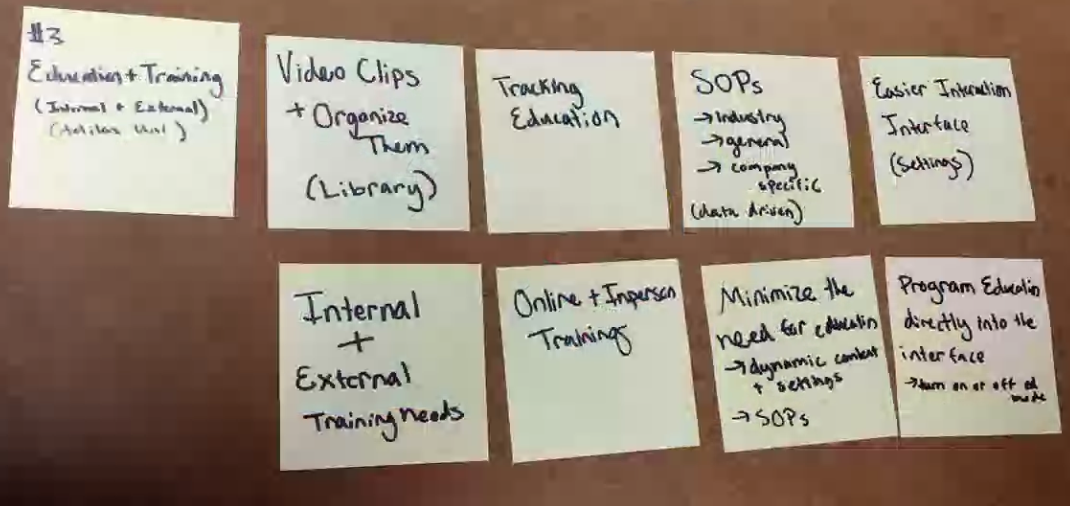 #3
Education + Training
(Internal + External)
Video Clips
+ Organize
Them
(Library)
Tracking
Education
SOPs
→ industry
→ general
→ company
specific
(data driven)
Easier Interaction
Interface
(Settings)
Internal
+
External
Training needs
Online + Inperson
Trainings
Minimize the
need for education
→ dynamic content
+ settings
→ SOPs
Program Education
directly into the
interface
→ turn on or off ed
mode